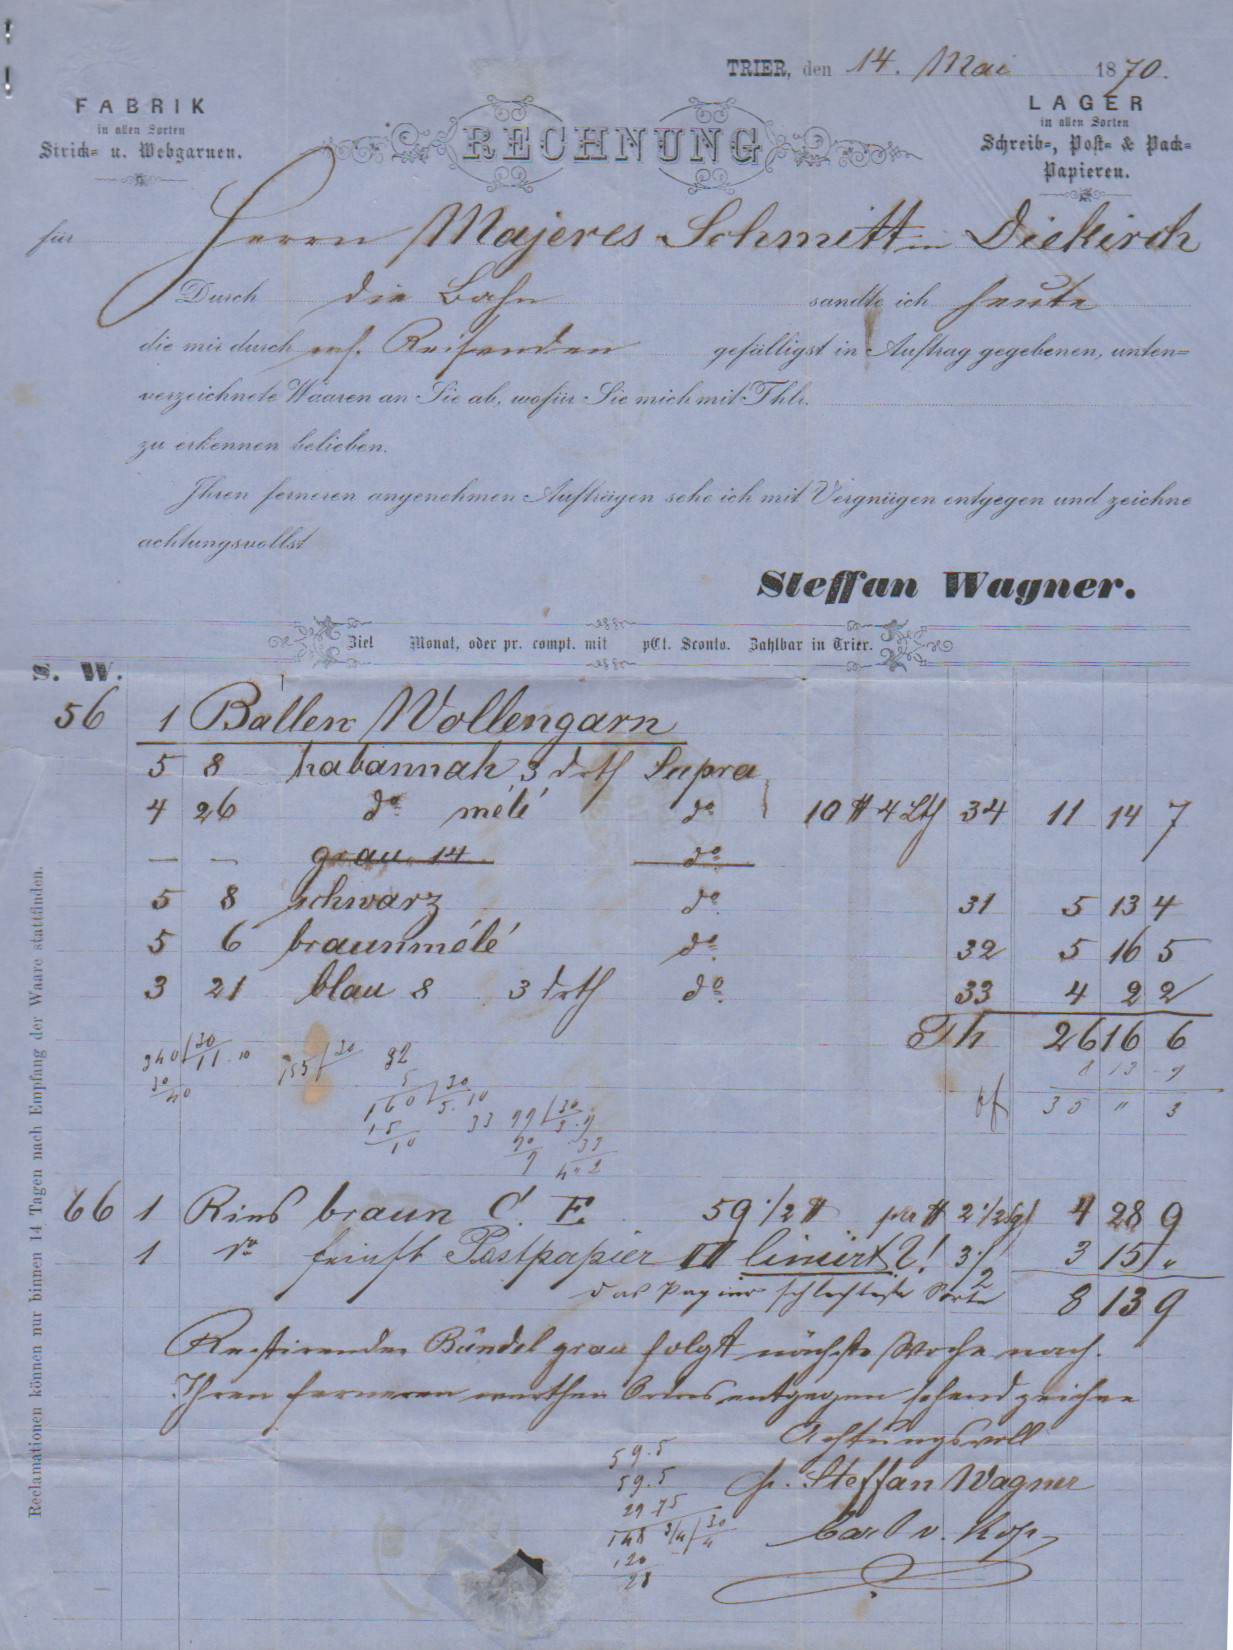 TRIER, den 14. Mai 1870.
FABRIK
in allen Sorten
Strick= u. Webgarnen.
RECHNUNG
LAGER
in allen Sorten
Schreib=, Post= & Pack=
Papieren.
für Herrn Majeres Schmitt in Diekirch
Durch die Bahn sandte ich heute
die mir durch ms. Reisenden gefälligst in Auftrag gegebenen, unten=
verzeichnete Waaren an Sie ab, wofür Sie mich mit Thlr.
zu erkennen belieben.
Ihren ferneren angenehmen Aufträgen sehe ich mit Vergnügen entgegen und zeichne
achtungsvollst
Steffan Wagner.
Ziel Monat, oder pr. compt. mit pCt. Sconto. Zahlbar in Trier.
S. W.
56 1 Ballen Wollengarn
5 8 habannah 3 drth Supra
4 26 do mélé do 10 ℔ 4 Lth 34 11 14 7
— — grau 14 do
5 8 schwarz do 31 5 13 4
5 6 braunmélé do 32 5 16 5
3 21 blau 8 3 drth do 33 4 2 2
Th 26 16 6
8 13 9
35 " 3
340 30 11.10
155 30
32
5
160 30 5.10
15
10
33 99 30 3.9
90 33
9 4"2
66 1 Ries braun C. F. 59 1/2 ℔ per ℔ 2 1/2 sgl 4 28 9
1 do feinst Postpapier III liniirt 2! 3 1/2 3 15 "
das Papier schlechteste Sorte 8 13 9
Restirender Bündel grau folgt nächste Woche nach.
Ihren ferneren werthen Ordres entgegen sehend zeichne
Achtungsvoll
pr. Steffan Wagner
Carl v.
59.5
59.5
29 75
148 3/4 30 4
120
28
Reclamationen können nur binnen 14 Tagen nach Empfang der Waare stattfinden.